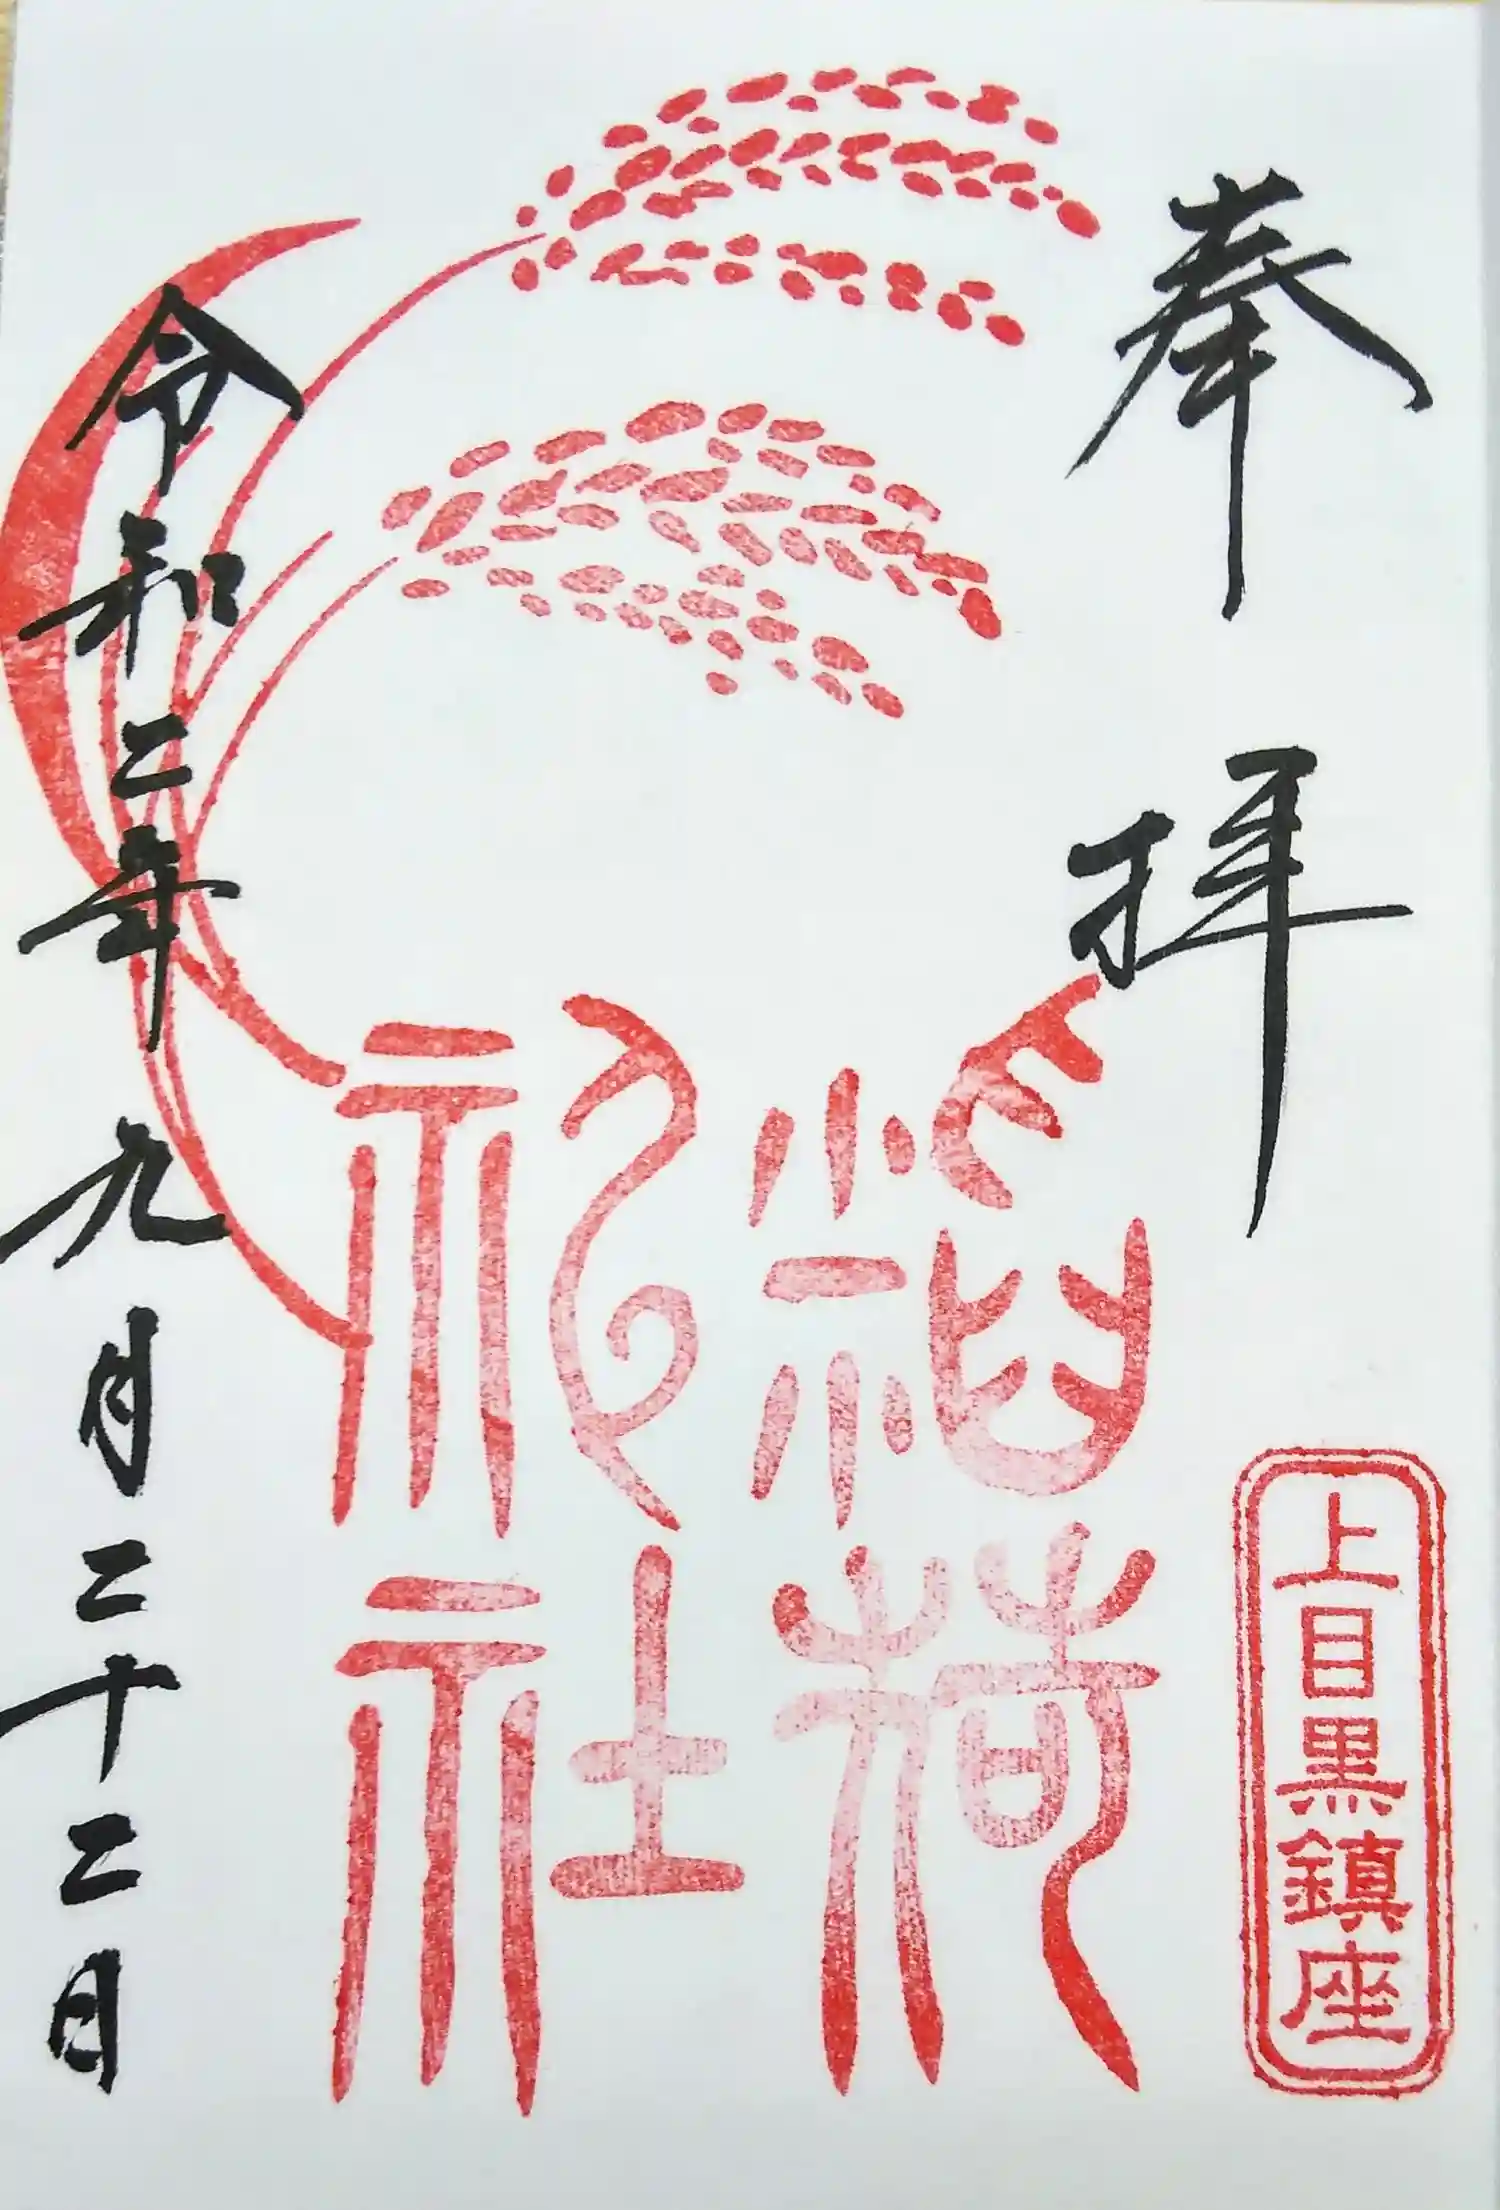 奉拝
上目黒鎮座
稲荷
神社
令和二年九月二十二日